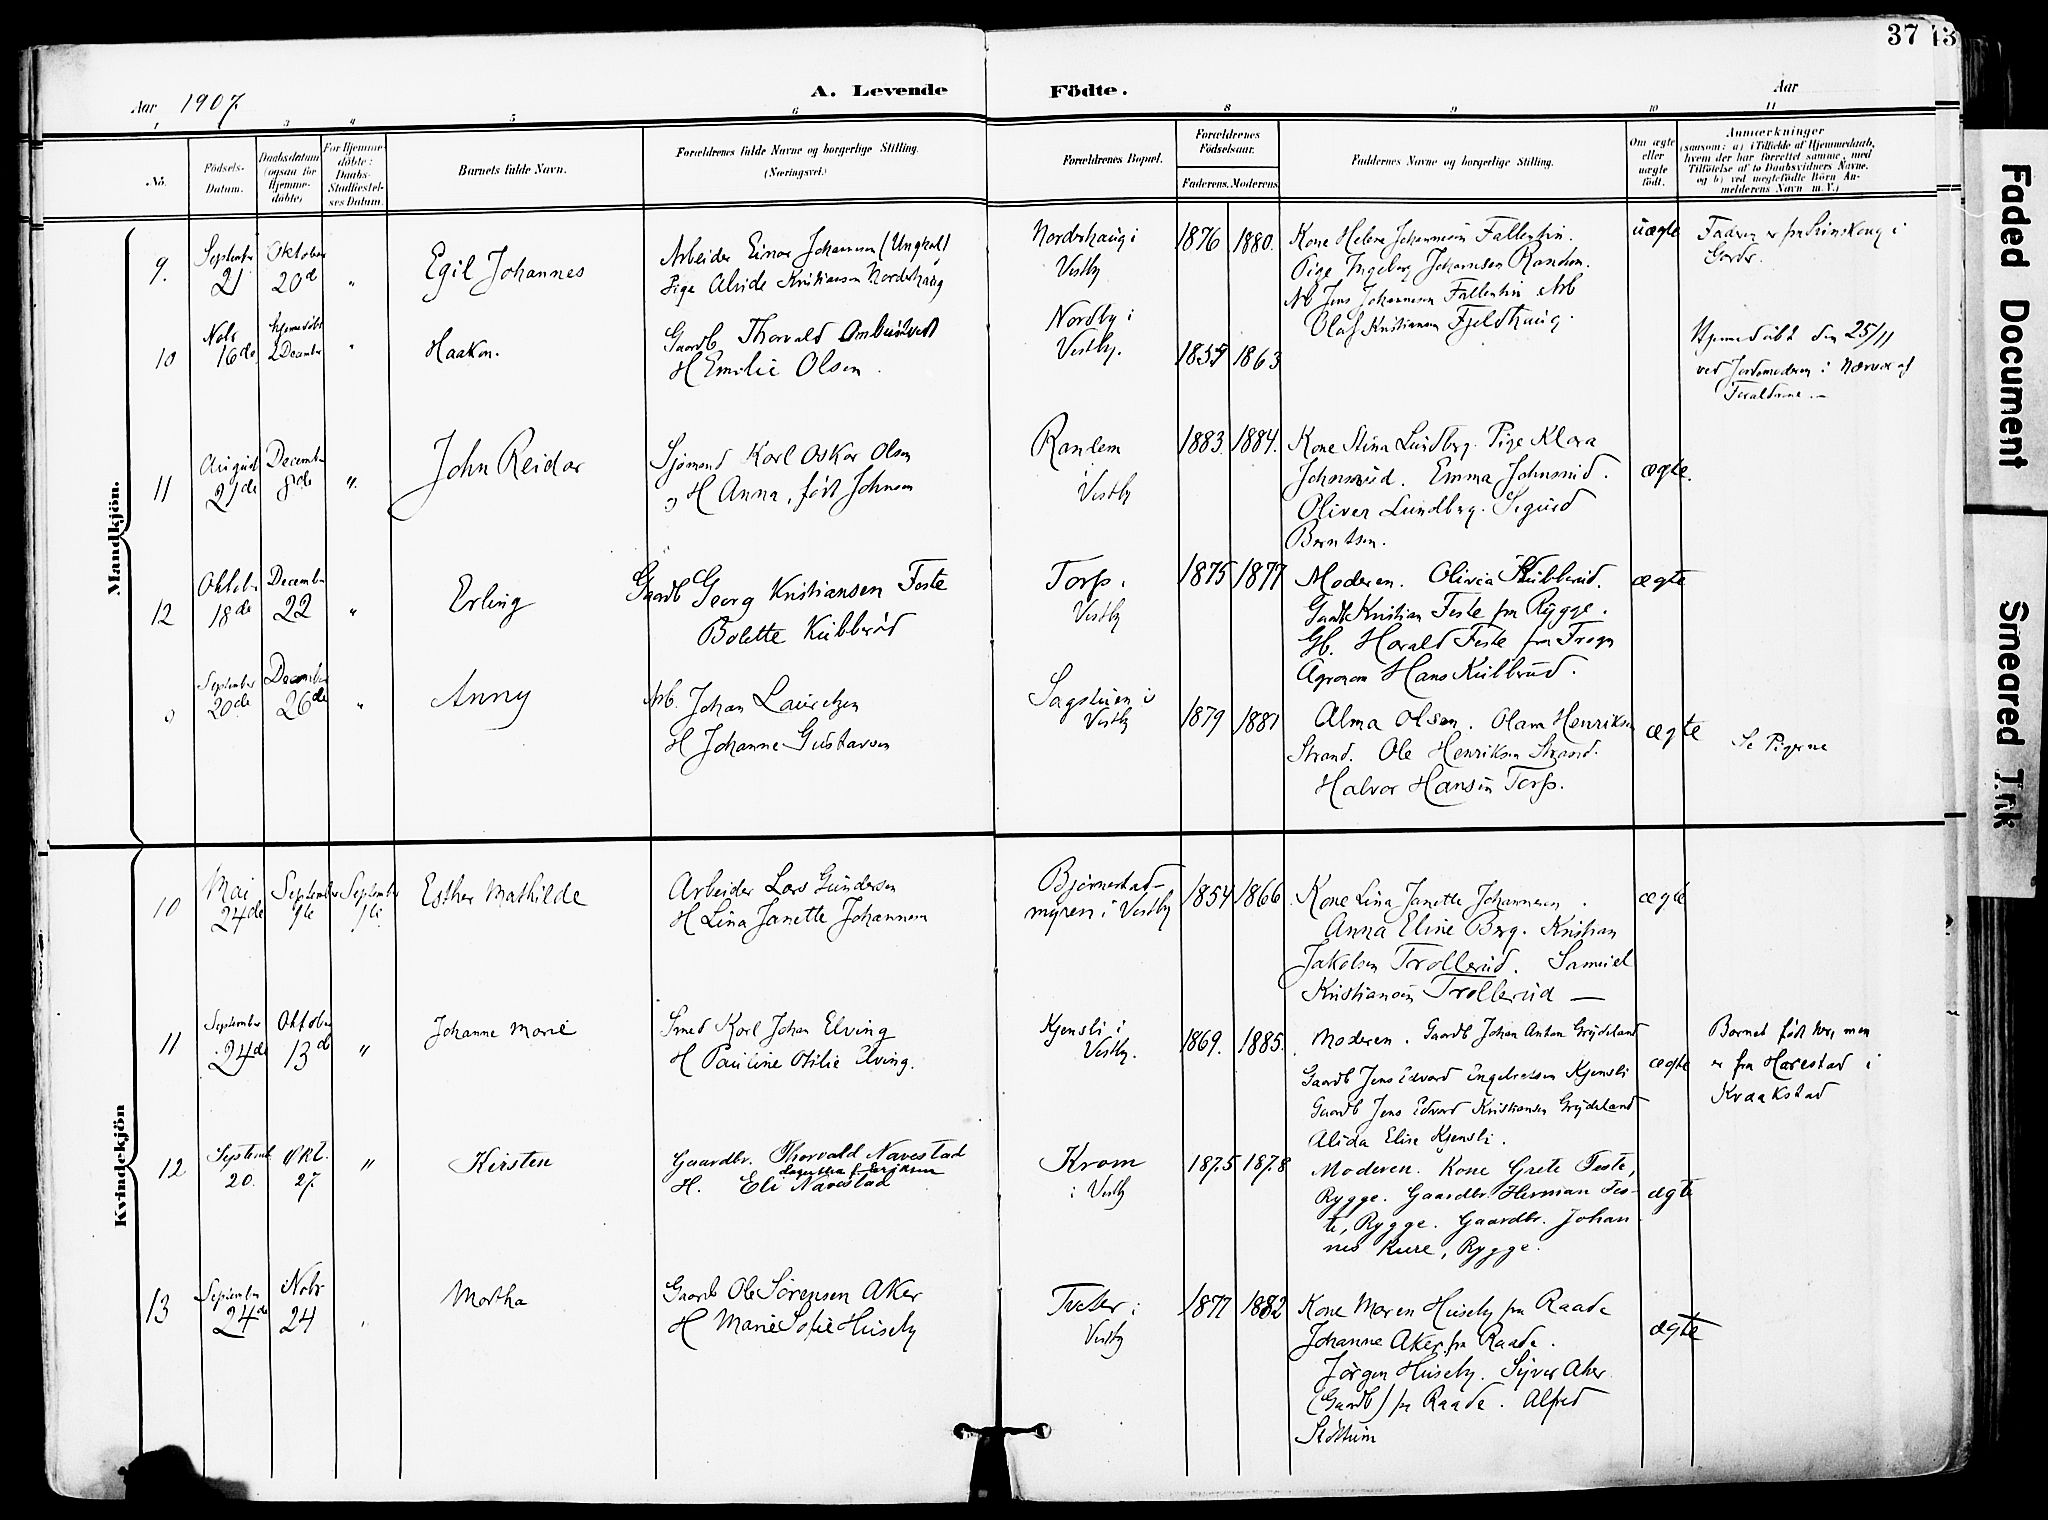 37
13
Aar 1907.
A. Levende Födte.
Aar
1 3 4 5 6 8 9 10 11
No.
Födsels-Datum.
Daabsdatum (ogsaa for Hjemme-döbte)
For Hjemme-döbte: Daabs-Stadfæstelses Datum.
Barnets fulde Navn.
Forældrenes fulde Navne og borgerlige Stilling. (Næringsvei.)
Forældrenes Bopæl.
Forældrenes Födselsaar.
Faderens. Moderens.
Faddernes Navne og borgerlige Stilling.
Om ægte eller uægte født.
Anmærkninger
(saasom: a) i Tilfælde af Hjemmedaab, hvem der har forrettet samme, med Tilföielse af to Daabsvidners Navne, og b) ved uægtefödte Börn Anmelderens Navn m. V.)
Mandkjön.
9. September 21 Oktober 20de " Egil Johannes
Arbeider Einar Johannesen (Ungkarl)
Pige Alvide Kristiansen Nordshaug
Nordshaug i Vestby
1876 1880.
Kone Helene Johannesen Fallentin.
Pige Ingeborg Johannsen Randem.
Arb Jens Johannesen Fallentin Arb
Olaf Kristiansen Fjeldhaug.
uægte
Faderen er fra
10 Nobr 16de hjemmedöbt 2 December " Haakon.
Gaardb Thorvald
H Emilie Olsen.
Nordby i Vestby.
1859 1863
Hjemmedöbt den 25/11
ved Jordmoderen i Nærvær af
Forældrene. —
11 August 21de December 8de " John Reidar
Sjömand Karl Oskar Olsen
og H Anna, født Johnsen
Randem i Vestby
1883. 1884.
Kone Stina Lundberg. Pige Klara
Johnsrud. Emma Johnsrud.
Oliver Lundberg. Sigurd
Berntsen.
ægte.
12 Oktober 18de December 22 " Erling
Gaardb Georg Kristiansen Feste
Bolette Kubberöd
Torp i Vestby
1875 1877
Moderen. Olivia Kubberud.
Gaardb Kristian Feste fra Rygge.
Gb. Harald Feste fra Frogn
Agronom Hans Kubbrud.
ægte
9 September 20de December 26de " Anny
Arb. Johan Lauritzen
H Johanne Gustavsen
Sagstuen i Vestby
1879 1881
Alma Olsen. Olava Henriksen
Strand. Ole Henriksen Strand.
Halvor Hansen Torp.
ægte
Se Pigerne
Kvindekjön
10 Mai 24de September 1ste September 1ste Esther Mathilde
Arbeider Lars Gundersen
H Lina Janette Johannesen
Bjørnestad-
myren i Vestby
1854 1866
Kone Lina Janette Johannesen.
Anna Eline Berg. Kristian
Jakobsen Trollerud. Samuel
Kristiansen Trollerud —
ægte
11 September 24de Oktober 13d " Johanne Marie
Smed Karl Johan Elving
H Pauline Otilie Elving.
Kjensli i Vestby.
1869. 1885.
Moderen. Gaardb Johan Anton Grydeland
Gaardb Jens Edvard Engebretsen Kjensli
Gaardb Jens Edvard Kristiansen Grydeland
Alida Elise Kjensli.
ægte
Barnet født her, men
er fra Harestad i
Kraakstad
12 Septemb 20. Okt. 27. " Kirsten
Gaardbr. Thorvald Navestad
H. Eli Navestad
Krom i Vestby
1875 1878
Moderen. Kone Grete Feste,
Rygge. Gaardbr. Herman Fes-
te, Rygge. Gaardbr. Johan
nes Kure, Rygge.
ægte
13 September 24de Nobr 24 Martha
Gaardb Ole Sörensen Aker
H Marie Sofie Huseby
Tveter i Vestby
1877 1882
Kone Maren Huseby fra Raade
Johanne Aker fra Raade.
Jørgen Huseby. Syver Aker
(Gaardb) fra Raade. Alfred
ægte
Faded Document
Smeared Ink